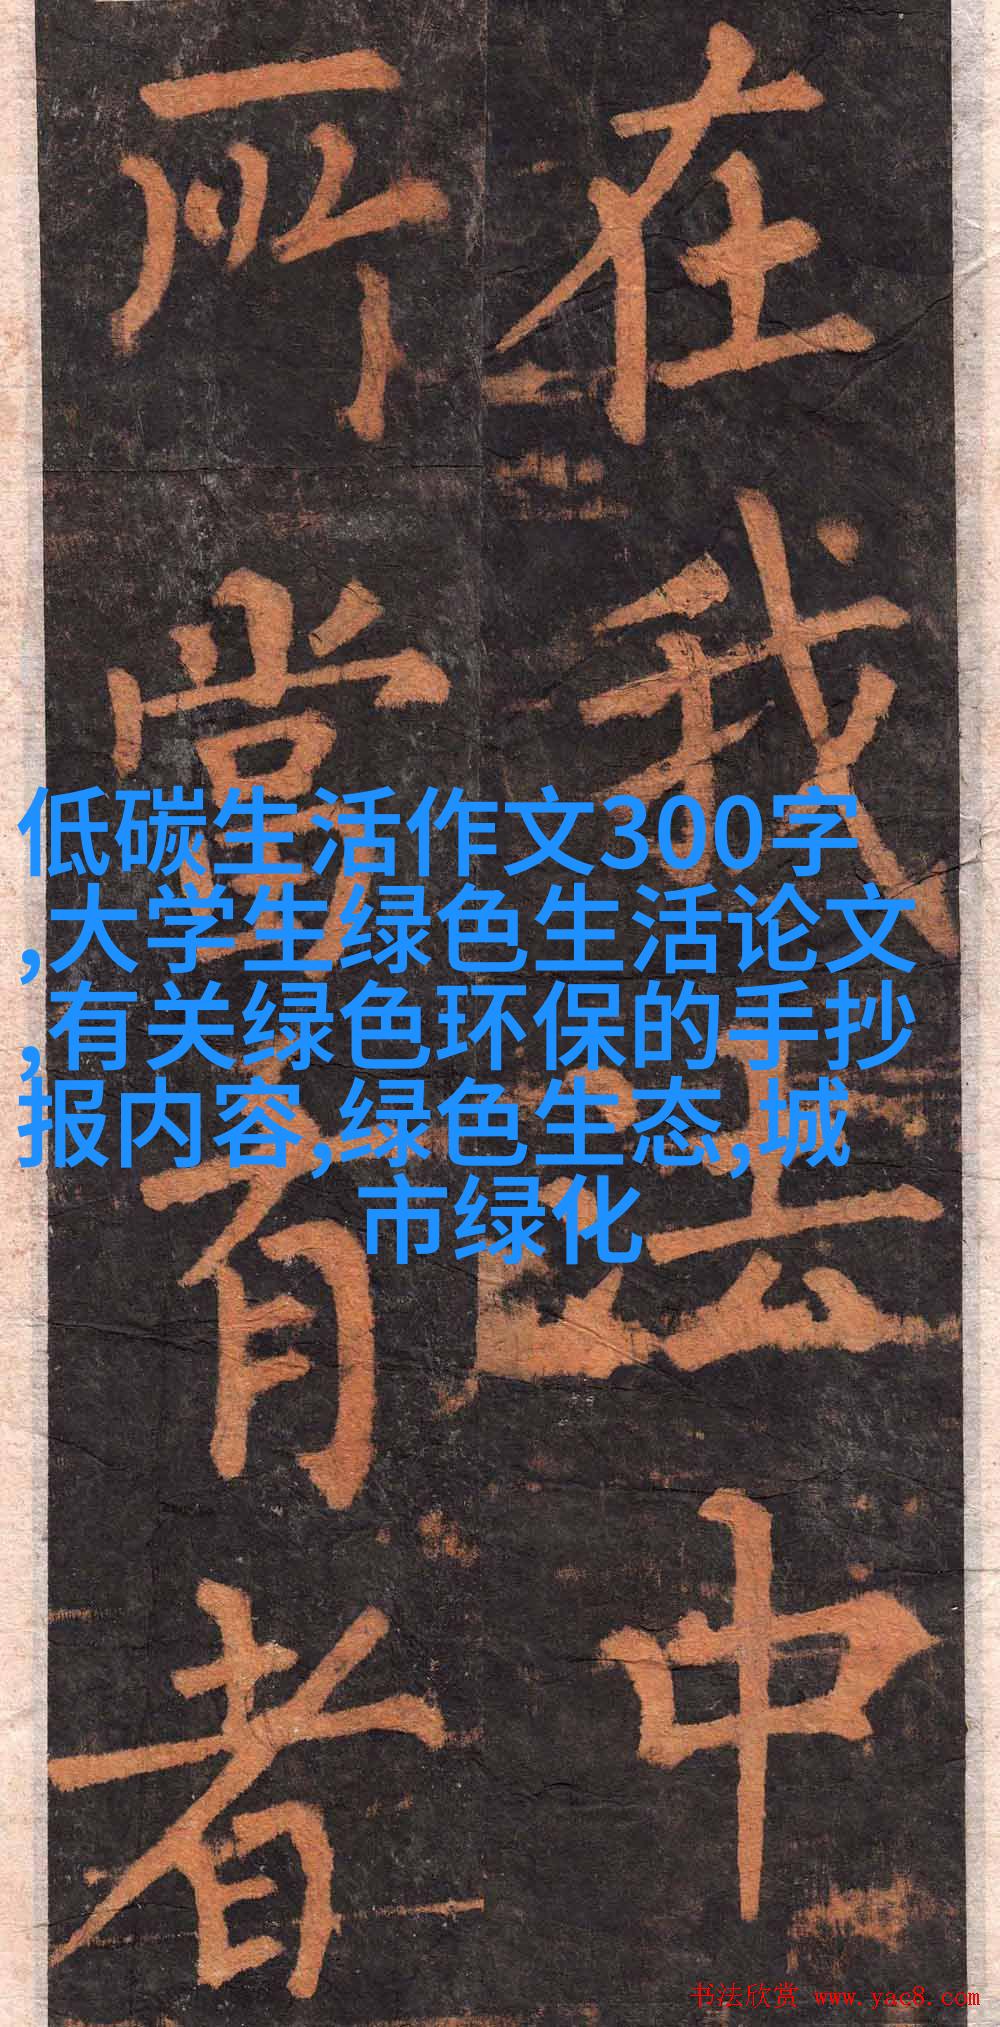 在我法中
所當有者
低碳生活作文300字
,大学生绿色生活论文
,有关绿色环保的手抄
报内容,绿色生态,城
市绿化
书法欣赏 www.yac8.com